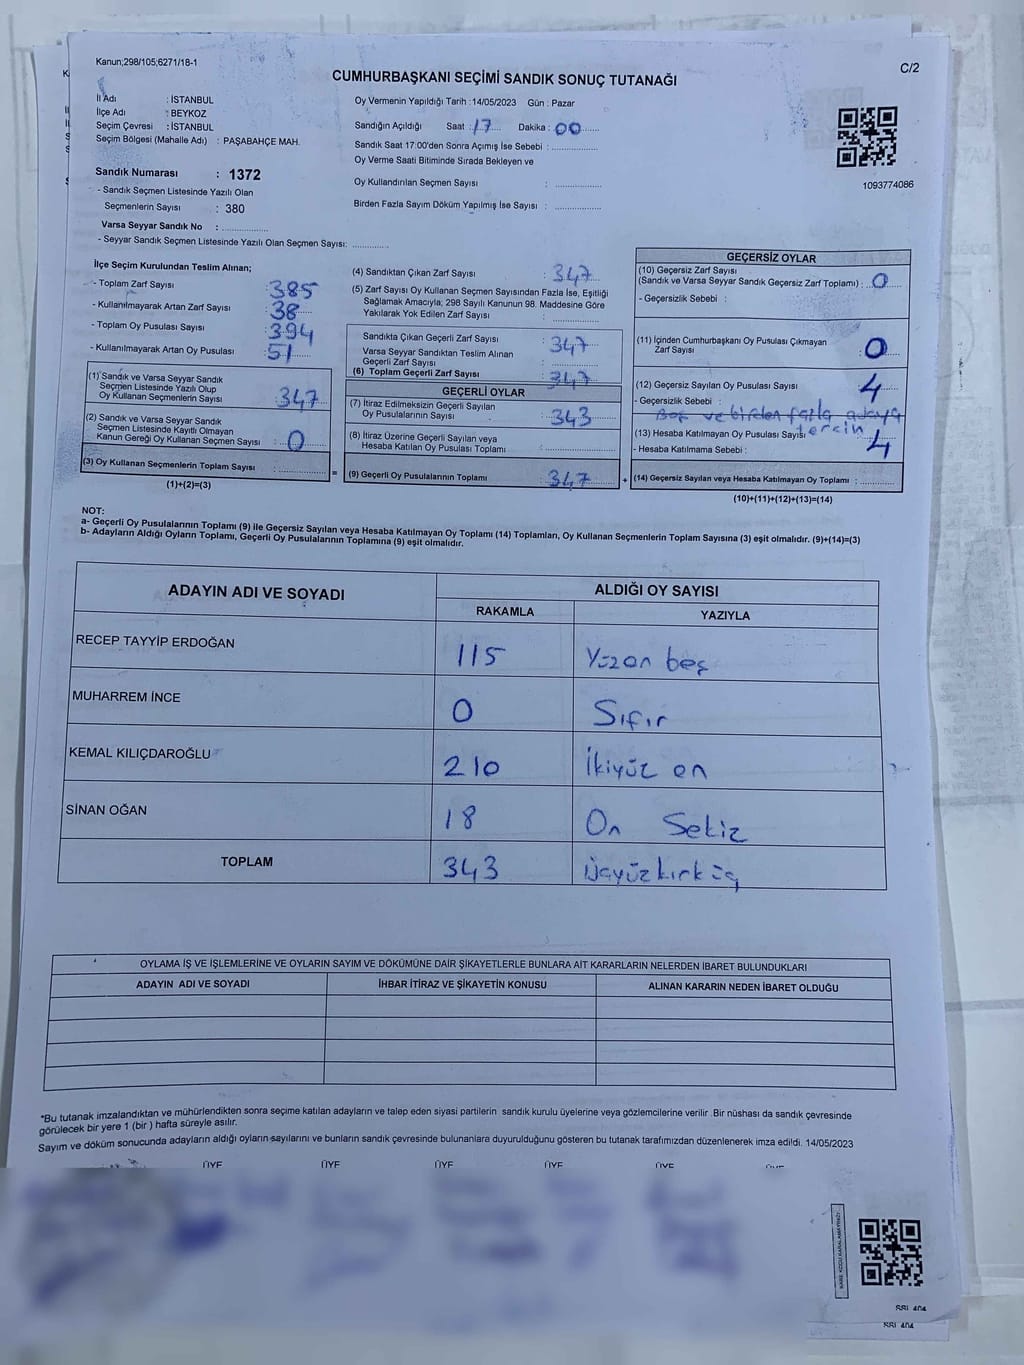 Kanun;298/105;6271/18-1
C/2
CUMHURBAŞKANI SEÇİMİ SANDIK SONUÇ TUTANAĞI
İl Adı : İSTANBUL
İlçe Adı : BEYKOZ
Seçim Çevresi : İSTANBUL
Seçim Bölgesi (Mahalle Adı) : PAŞABAHÇE MAH.
Sandık Numarası : 1372
- Sandık Seçmen Listesinde Yazılı Olan
Seçmenlerin Sayısı : 380
Varsa Seyyar Sandık No : ..............
- Seyyar Sandık Seçmen Listesinde Yazılı Olan Seçmen Sayısı: ............
Oy Vermenin Yapıldığı Tarih :14/05/2023 Gün : Pazar
Sandığın Açıldığı Saat :17.... Dakika : 00......
Sandık Saat 17:00'den Sonra Açımış İse Sebebi : ..............
Oy Verme Saati Bitiminde Sırada Bekleyen ve
Oy Kullandırılan Seçmen Sayısı : ..............
Birden Fazla Sayım Döküm Yapılmış İse Sayısı : ..............
1093774086
İlçe Seçim Kurulundan Teslim Alınan;
- Toplam Zarf Sayısı : 385
- Kullanılmayarak Artan Zarf Sayısı : 38
- Toplam Oy Pusulası Sayısı : 394
- Kullanılmayarak Artan Oy Pusulası : 51
(1) Sandık ve Varsa Seyyar Sandık
Seçmen Listesinde Yazılı Olup
Oy Kullanan Seçmenlerin Sayısı : 347
(2) Sandık ve Varsa Seyyar Sandık
Seçmen Listesinde Kayıtlı Olmayan
Kanun Gereği Oy Kullanan Seçmen Sayısı : 0
(3) Oy Kullanan Seçmenlerin Toplam Sayısı : ..............
(1)+(2)=(3)
(4) Sandıktan Çıkan Zarf Sayısı : 347
(5) Zarf Sayısı Oy Kullanan Seçmen Sayısından Fazla İse, Eşitliği
Sağlamak Amacıyla; 298 Sayılı Kanunun 98. Maddesine Göre
Yakılarak Yok Edilen Zarf Sayısı : ..............
Sandıkta Çıkan Geçerli Zarf Sayısı : 347
Varsa Seyyar Sandıktan Teslim Alınan
Geçerli Zarf Sayısı : ..............
(6) Toplam Geçerli Zarf Sayısı : 347
GEÇERLİ OYLAR
(7) İtiraz Edilmeksizin Geçerli Sayılan
Oy Pusulalarının Sayısı : 343
(8) İtiraz Üzerine Geçerli Sayılan veya
Hesaba Katılan Oy Pusulası Toplamı : ..............
= (9) Geçerli Oy Pusulalarının Toplamı : 347
GEÇERSİZ OYLAR
(10) Geçersiz Zarf Sayısı
(Sandık ve Varsa Seyyar Sandık Geçersiz Zarf Toplamı) : 0
- Geçersizlik Sebebi :
(11) İçinden Cumhurbaşkanı Oy Pusulası Çıkmayan
Zarf Sayısı : 0
(12) Geçersiz Sayılan Oy Pusulası Sayısı : 4
- Geçersizlik Sebebi :
Boş ve birden fazla adaya
tercih
(13) Hesaba Katılmayan Oy Pusulası Sayısı : 4
- Hesaba Katılmama Sebebi :
+ (14) Geçersiz Sayılan veya Hesaba Katılmayan Oy Toplamı : ..........
(10)+(11)+(12)+(13)=(14)
NOT:
a- Geçerli Oy Pusulalarının Toplamı (9) ile Geçersiz Sayılan veya Hesaba Katılmayan Oy Toplamı (14) Toplamları, Oy Kullanan Seçmenlerin Toplam Sayısına (3) eşit olmalıdır. (9)+(14)=(3)
b- Adayların Aldığı Oyların Toplamı, Geçerli Oy Pusulalarının Toplamına (9) eşit olmalıdır.
ADAYIN ADI VE SOYADI ALDIĞI OY SAYISI
RAKAMLA YAZIYLA
RECEP TAYYİP ERDOĞAN 115 Yüzon beş
MUHARREM İNCE 0 Sıfır
KEMAL KILIÇDAROĞLU 210 İkiyüz on
SİNAN OĞAN 18 On Sekiz
TOPLAM 343 Üçyüzkırk üç
OYLAMA İŞ VE İŞLEMLERİNE VE OYLARIN SAYIM VE DÖKÜMÜNE DAİR ŞİKAYETLERLE BUNLARA AİT KARARLARIN NELERDEN İBARET BULUNDUKLARI
ADAYIN ADI VE SOYADI İHBAR İTİRAZ VE ŞİKAYETİN KONUSU ALINAN KARARIN NEDEN İBARET OLDUĞU
*Bu tutanak imzalandıktan ve mühürlendikten sonra seçime katılan adayların ve talep eden siyasi partilerin sandık kurulu üyelerine veya gözlemcilerine verilir .Bir nüshası da sandık çevresinde
görülecek bir yere 1 (bir ) hafta süreyle asılır.
Sayım ve döküm sonucunda adayların aldığı oyların sayılarını ve bunların sandık çevresinde bulunanlara duyurulduğunu gösteren bu tutanak tarafımızdan düzenlenerek imza edildi. 14/05/2023
ÜYE ÜYE ÜYE ÜYE ÜYE
KARE KODU KARALAMAYINIZ!